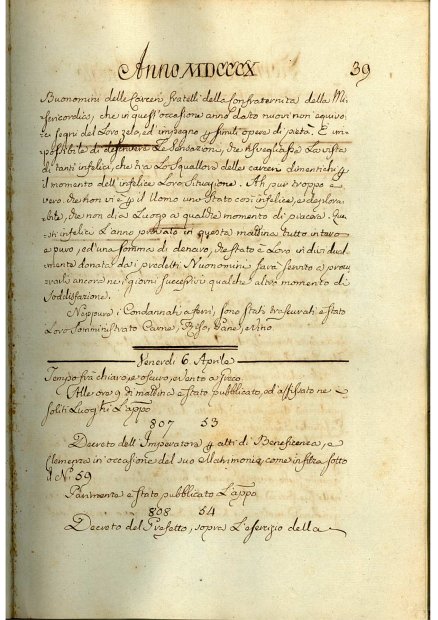 Anno MDCCCX 39
Buonomini delle Carceri, fratelli della Confraternita della Mi-
sericordia, che in quest'occasione anno dato nuovi non equivo-
ci segni del Loro zelo, ed impegno p simili opere di pietà. È im-
possibile di descrivere Le sensazioni, che risvegliasse La vista
di tanti infelici, che tra Lo squallore delle carceri dimentichi p
il momento dell'infelice Loro Situazione. Ah pur troppo è
vero che non vi è p il Uomo uno Stato così infelice, e deplora-
bile, che non dia Luogo a qualche momento di piacere. Que-
sti infelici L'anno provato in questa mattina tutto intero
e puro, ed una somma di denaro, che è stato a Loro individual-
mente donata dai predetti Buonomini farà servito a procu-
rarli ancor ne' giorni successivi qualche altro momento di
Soddisfazione.
Neppure i Condannati a ferri, sono stati trascurati, e stato
Loro Somministrato Carne, Riso, Pane, e vino.
Venerdi 6. Aprile
Tempo frà chiaro, e oscuro, e vento a Greco
Alle ore 9 di mattina è stato pubblicato, ed affissato ne
soliti Luoghi L'appo
807 53
Decreto dell'Imperatore p atti di Beneficenza, e
Clemenza in occasione del suo Matrimonio come in filza sotto
il N.º 59
Parimente è stato pubblicato L'appo
808 54
Decreto del Prefetto, sopra L'esercizio della